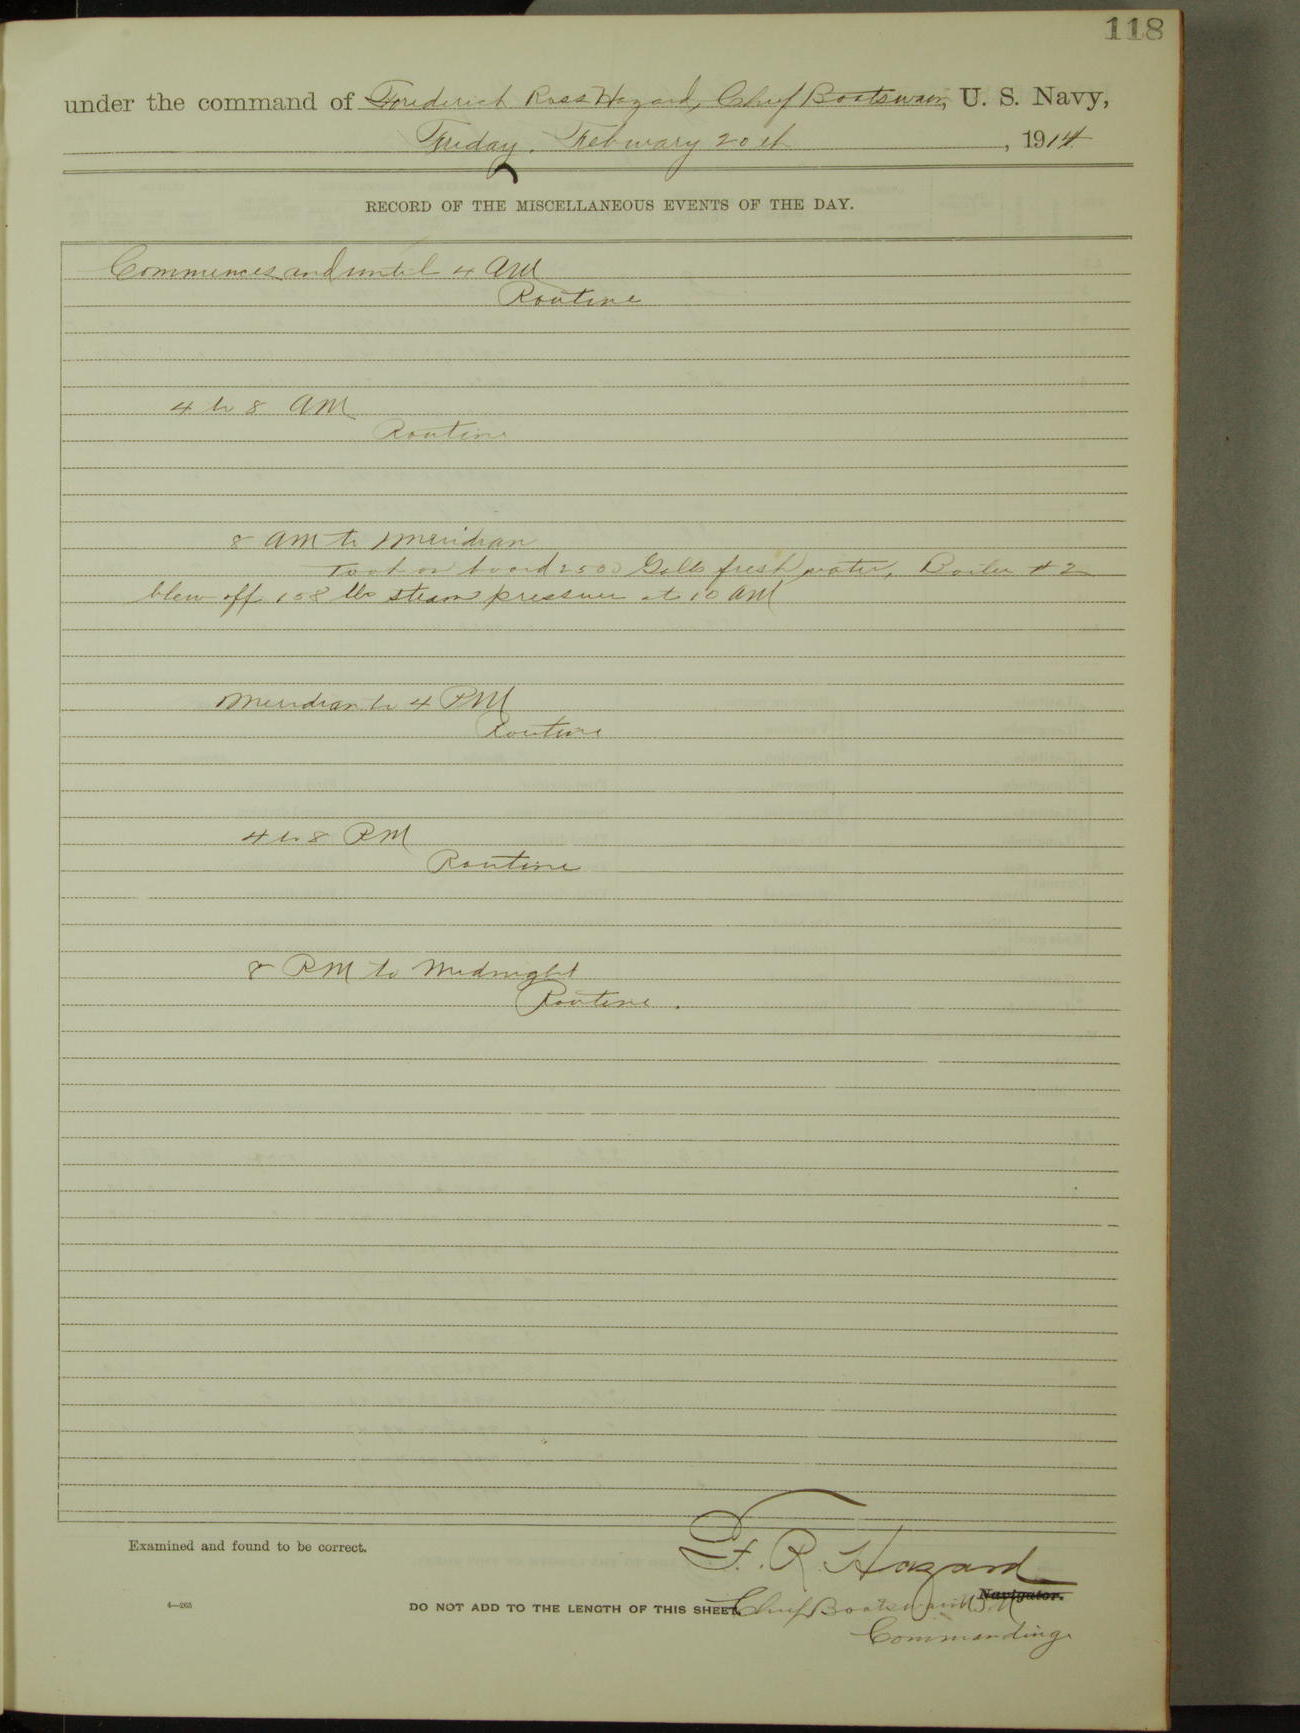 118
under the command of Frederick Ross Hazard, Chief Boatswain, U. S. Navy,
Friday, February 20th, 1914
RECORD OF THE MISCELLANEOUS EVENTS OF THE DAY.
Commences and until 4 AM
Routine
4 to 8 AM
Routine
8 AM to Meridian
Took on board 2500 Galls fresh water, Boiler #2
blew off 158 lbs steam pressure at 10 AM
Meridian to 4 PM
Routine
4 to 8 PM
Routine
8 PM to Midnight
Routine.
F. R. Hazard
Examined and found to be correct.
Navigator.
4—265
DO NOT ADD TO THE LENGTH OF THIS SHEET.
Chief Boatswain U.S.N
Commanding